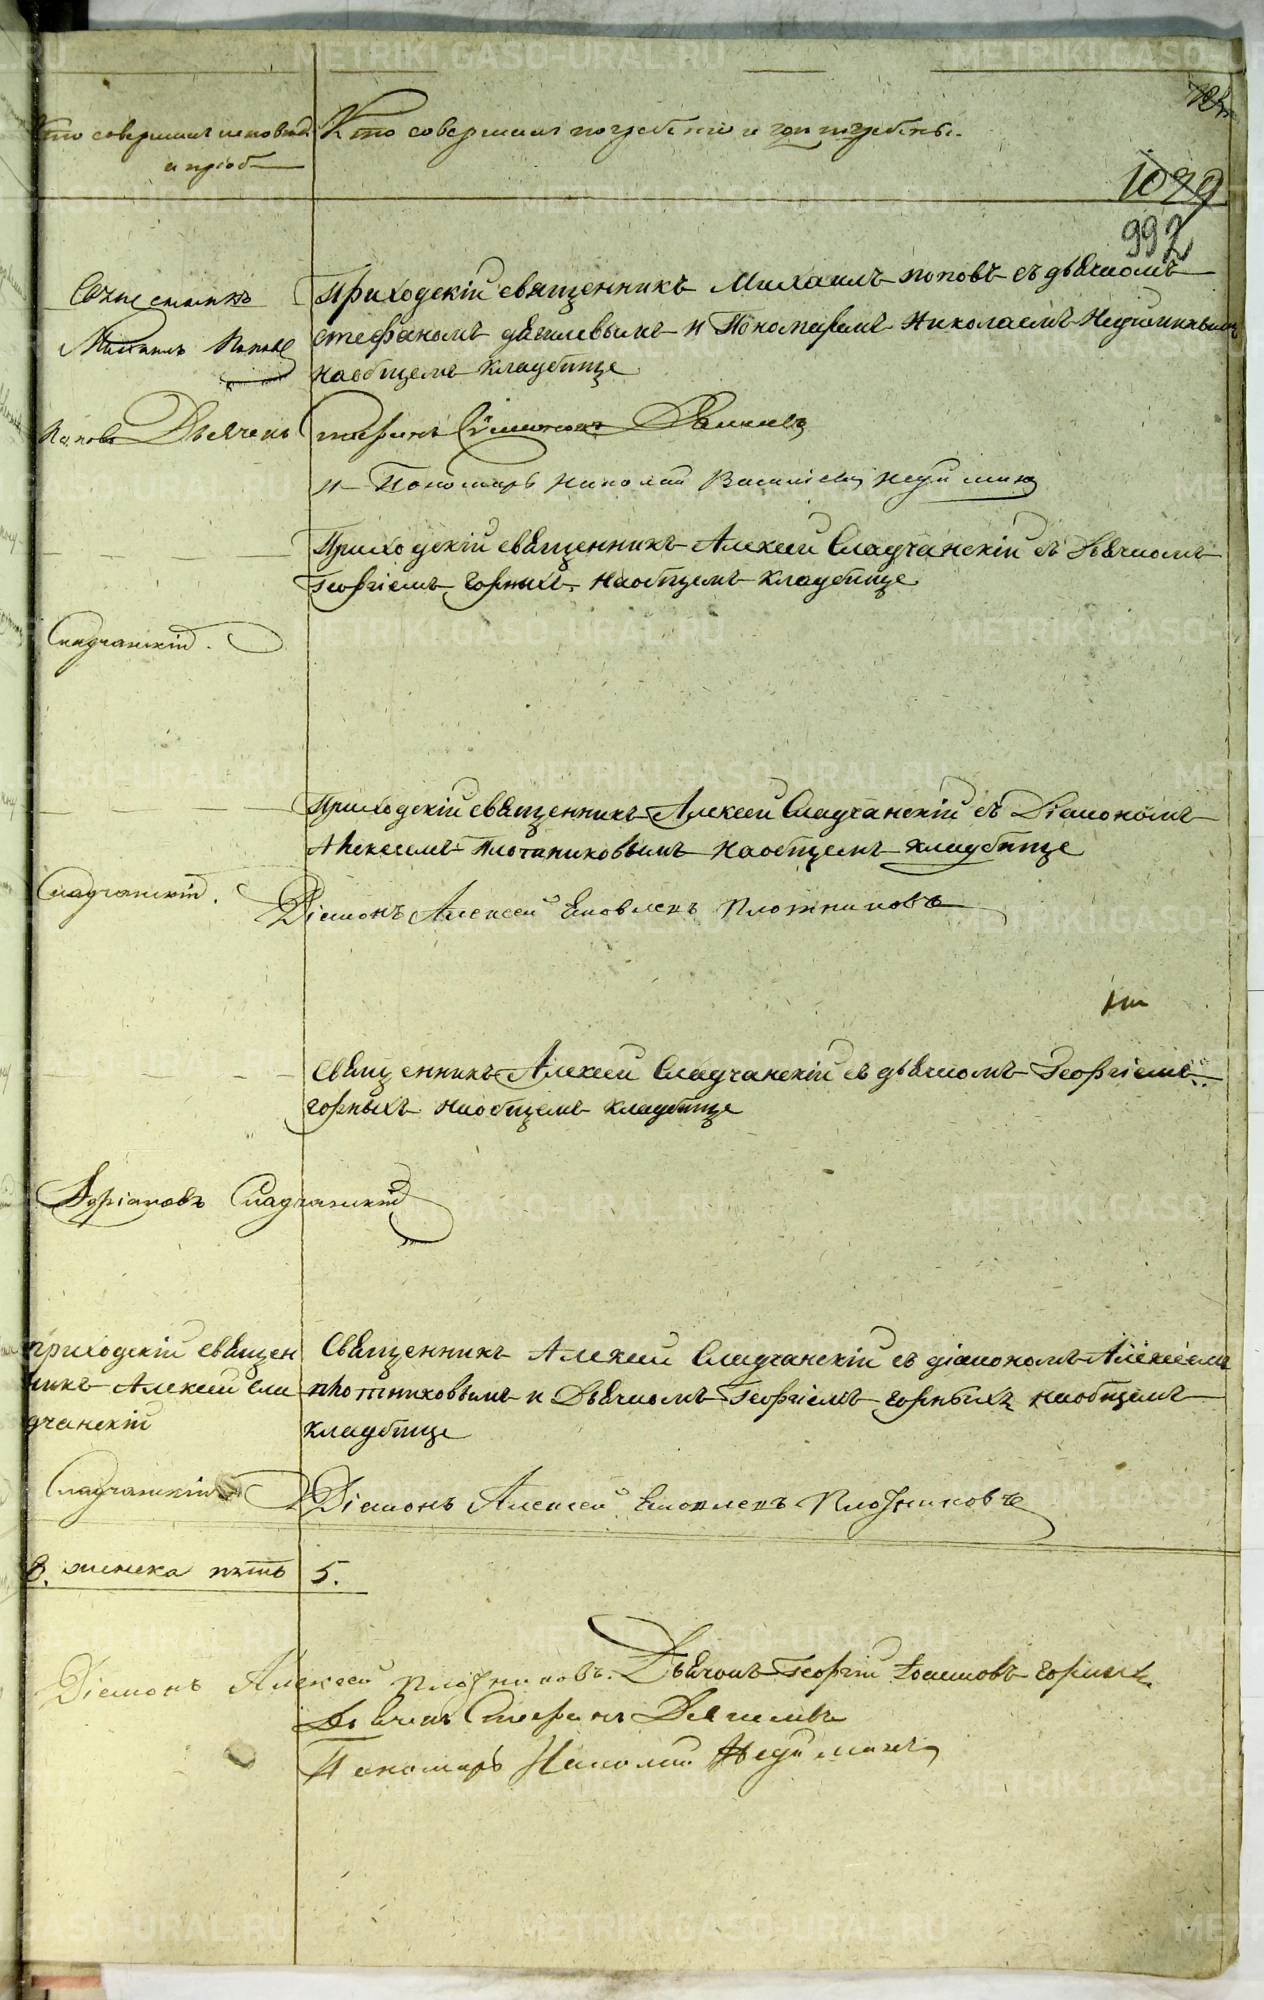 Кто совершалъ исповѣдь
и приоб
Кто совершалъ погребенiе и гдѣ погребены.
1079
992
Священникъ
Михаилъ Поповъ
Приходскій священникъ Михаилъ поповъ съ дьячкомъ
стефаномъ и Пономаремъ Николаемъ
наобщемъ кладбище
Поповъ Дьячекъ Стефанъ
и Пономарь Николай Василіевъ
Приходскій священникъ Алексей Сладчанскій съ Дьячкомъ
Георгіемъ горныхъ наобщемъ кладбище
Сладчанскій.
Приходскій священникъ Алексей Сладчанскій съ Діакономъ
Алексеемъ Плотниковымъ наобщемъ кладбище
Сладчанскій.
Діаконъ Алексей Яковлевъ Плотниковъ
Священникъ Алексей Сладчанскій съ дьячкомъ Георгіемъ
горныхъ наобщемъ кладбище
Сладчанскій
приходскій священ
никъ Алексей Сла
дчанскій
Священникъ Алексей Сладчанскій съ діакономъ Алексеемъ
плотниковымъ и Дьячкомъ Георгіемъ горныхъ наобщемъ
кладбище
Сладчанскій
Діаконъ Алексей Яковлевъ Плотниковъ
женска пять 5.
Діаконъ Алексей Плотниковъ. Дьячокъ Георгій Іоанновъ горныхъ
Дьячекъ Стефанъ
Пономарь Николай
METRIKI.GASO-URAL.RU